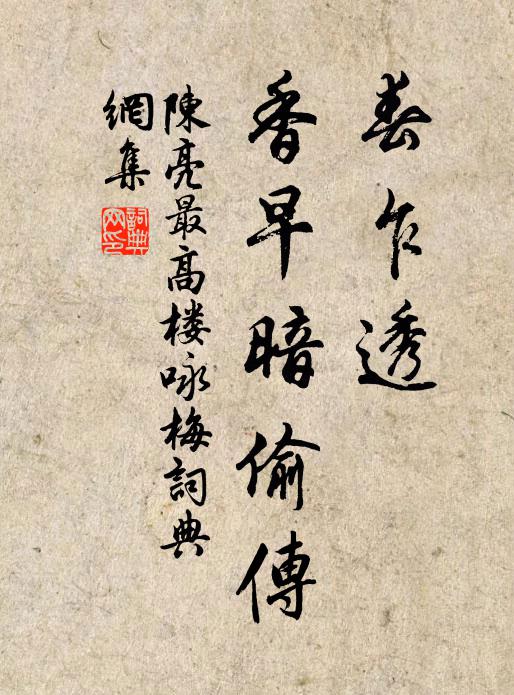 春乍透
香早暗偷傳
陳亮最高楼咏梅詞典
網集
詞典網印